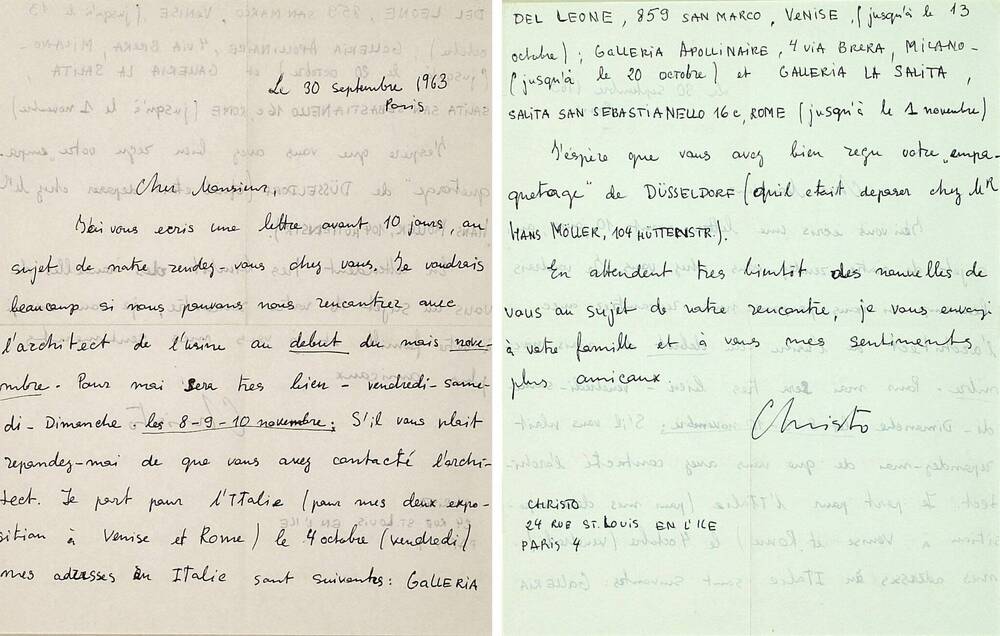 Le 30 septembre 1963
Paris
Cher Monsieur,
J'ai vous ecris une lettre avant 10 jours, au
sujet de notre rendez-vous chez vous. Je voudrais
beaucoup si nous pouvons nous rencontrez avec
l'architect de l'usine au debut du mois nove-
mbre. Pour moi sera tres bien - vendredi-same-
di-Dimanche. les 8-9-10 novembre; S'il vous plait
repondez-moi de que vous avez contacté l'archi-
tect. Je part pour l'Italie (pour mes deux expo-
sition à Venise et Rome) le 4 octobre (vendredi)
mes adresses en Italie sont suivantes: GALLERIA
DEL LEONE, 859 SAN MARCO, VENISE, (jusqu'à le 13
octobre); GALLERIA APOLLINAIRE, 4 VIA BRERA, MILANO-
(jusqu'à le 20 octobre) et GALLERIA LA SALITA,
SALITA SAN SEBASTIANELLO 16 c, ROME (jusqu'à le 1 novembre)
J'éspère que vous avez bien reçu votre „empa-
quetage" de DÜSSELDORF (qu'il etait deposer chez Mr
HANS MÖLLER, 104 HÜTTENSTR.).
En attendent tres bientit des nouvelles de
vous au sujet de notre rencontre, je vous envoyi
à votre famille et à vous mes sentiments
plus amicaux
Christo
CHRISTO
24 RUE ST. LOUIS EN L'ILE
PARIS 4